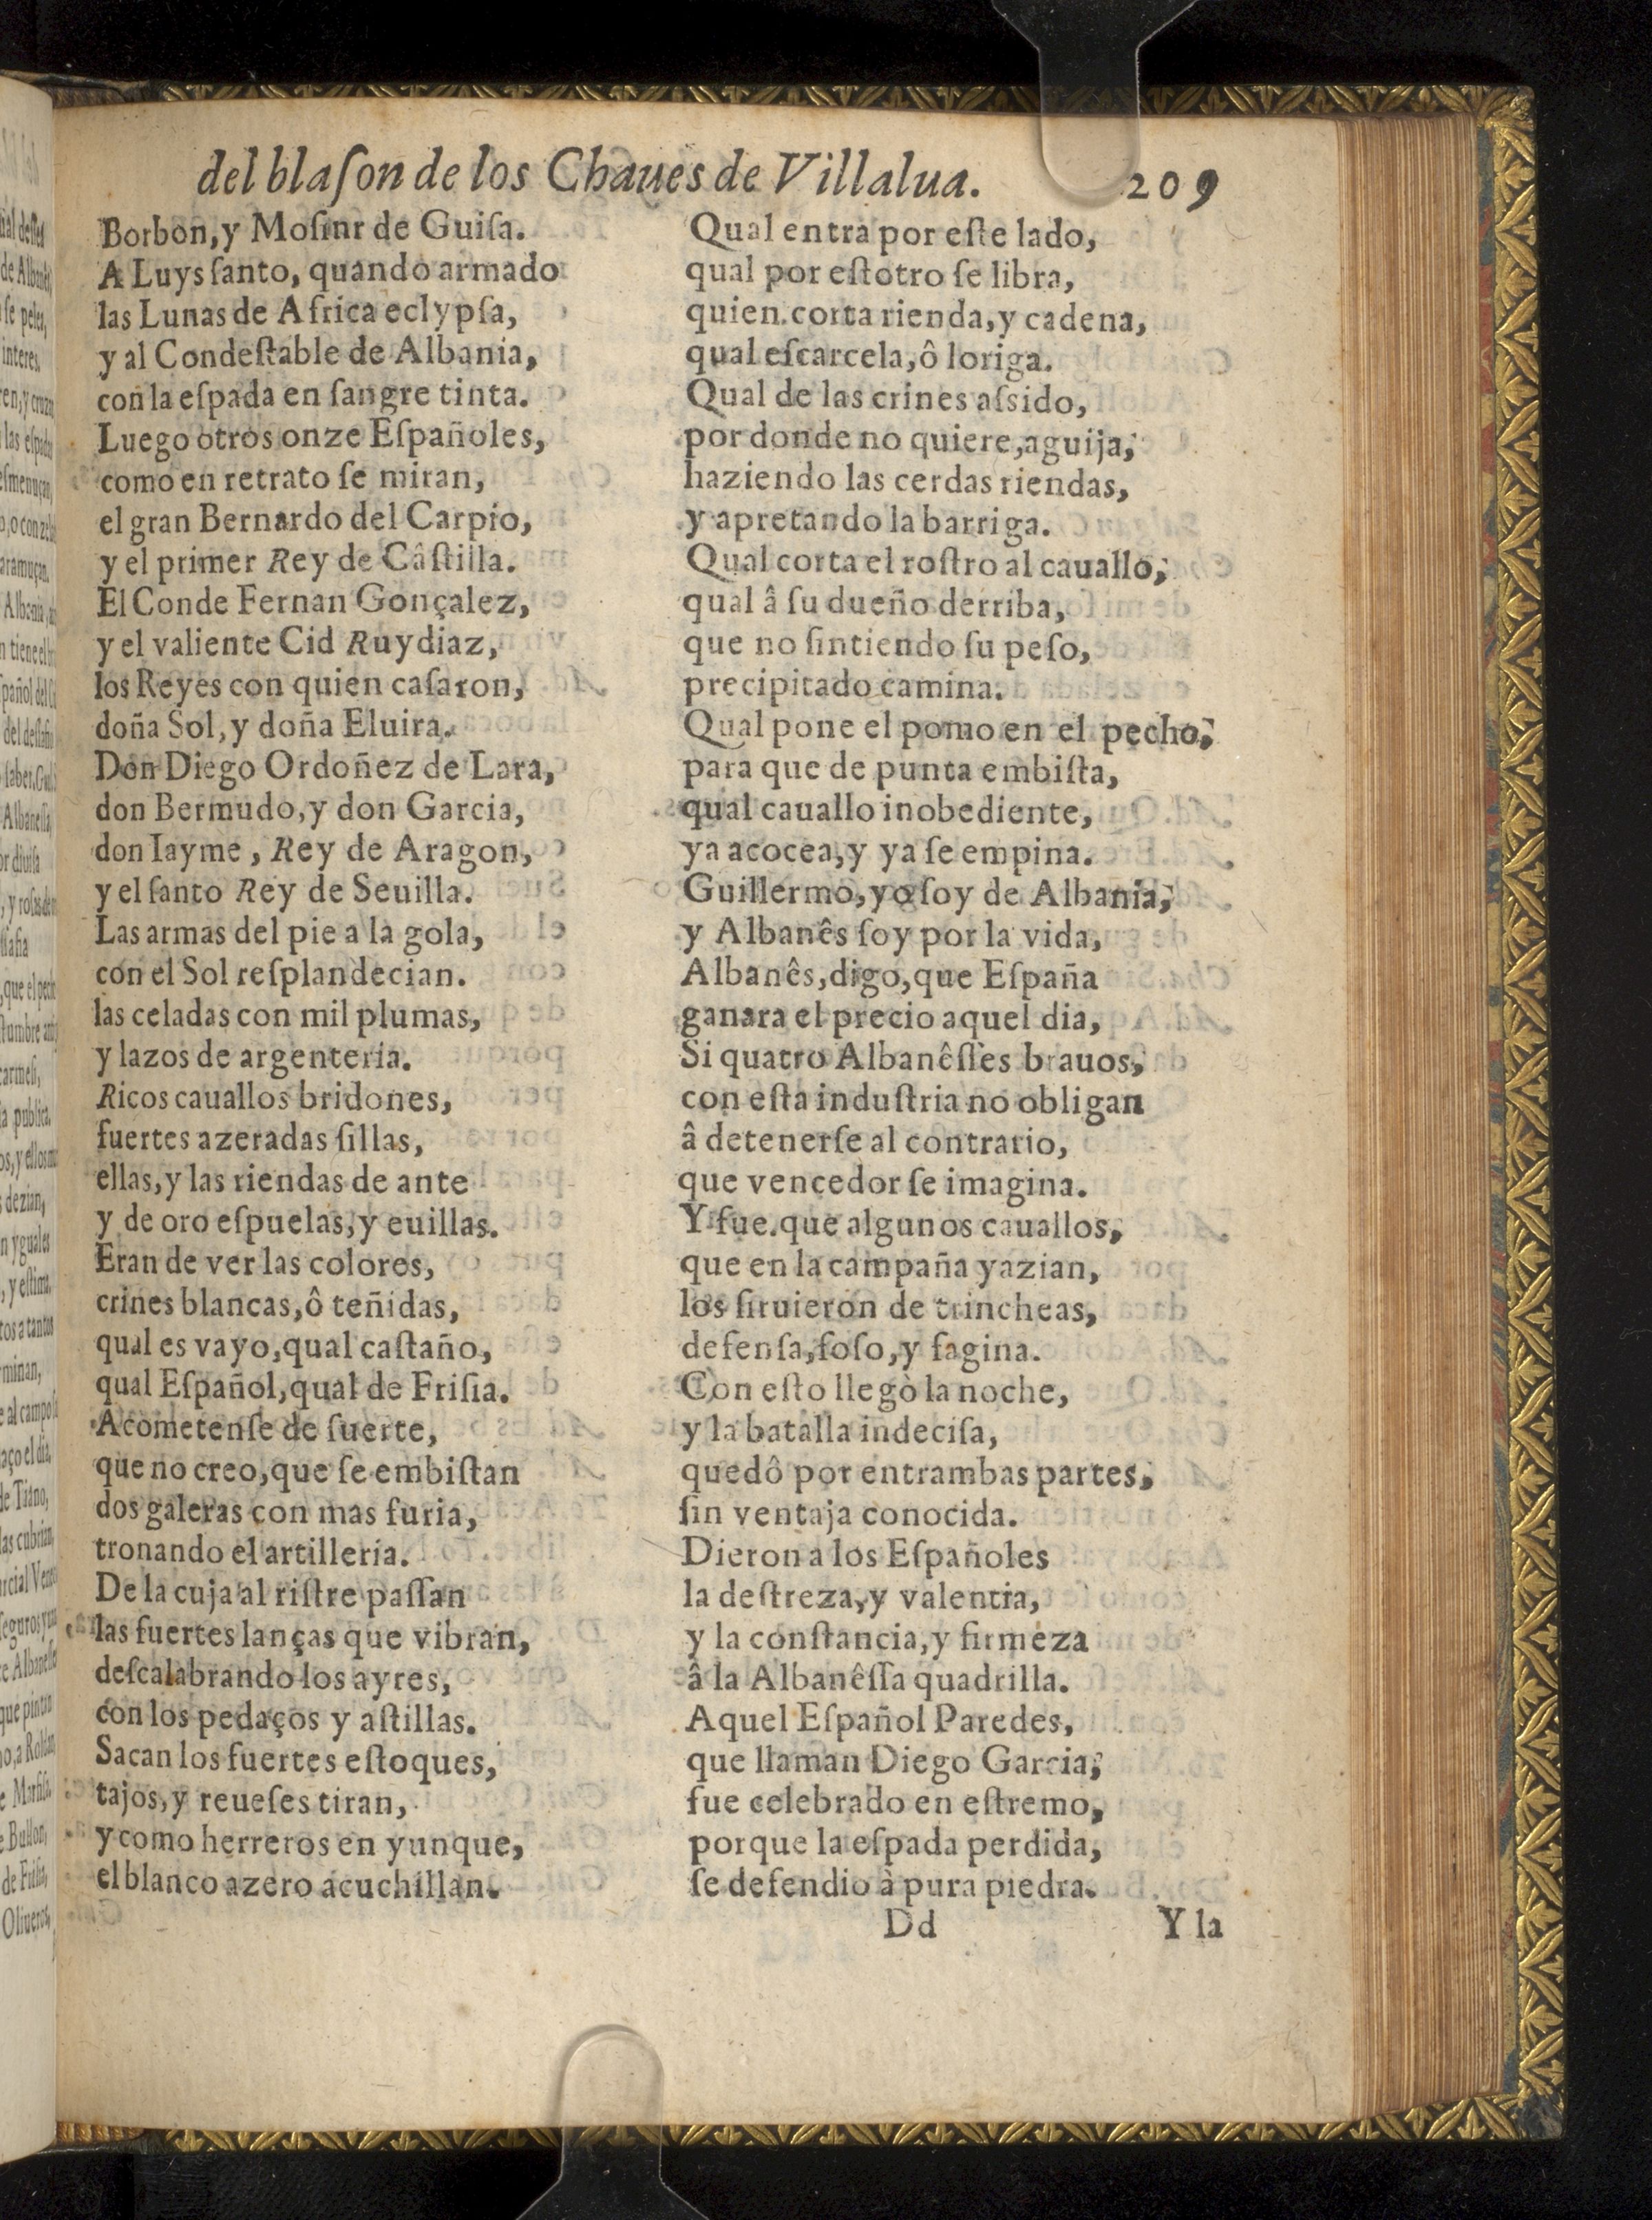 del blaſon de los Chaues de Villalua. 209
Borbon, y Moſinr de Guiſa.
A Luys ſanto, quando armado
las Lunas de Africa eclypſa,
y al Condeſtable de Albania,
con la eſpada en ſangre tinta.
Luego otros onze Eſpañoles,
como en retrato ſe miran,
el gran Bernardo del Carpio,
y el primer Rey de Câſtilla.
El Conde Fernan Gonçalez,
y el valiente Cid Ruydiaz,
los Reyes con quien caſaron,
doña Sol, y doña Eluira.
Don Diego Ordoñez de Lara,
don Bermudo, y don Garcia,
don Iayme, Rey de Aragon,
y el ſanto Rey de Seuilla.
Las armas del pie a la gola,
con el Sol reſplandecian.
las celadas con mil plumas,
y lazos de argenteria.
Ricos cauallos bridones,
fuertes azeradas ſillas,
ellas, y las riendas de ante
y de oro eſpuelas, y euillas.
Eran de ver las colores,
crines blancas, ô teñidas,
qual es vayo, qual caſtaño,
qual Eſpañol, qual de Friſia.
Acometenſe de ſuerte,
que no creo, que ſe embiſtan
dos galeras con mas furia,
tronando el artilleria.
De la cuja al riſtre paſſan
las fuertes lanças que vibran,
deſcalabrando los ayres,
con los pedaços y aſtillas.
Sacan los fuertes eſtoques,
tajos, y reueſes tiran,
y como herreros en yunque,
el blanco azero acuchillan.
Qual entra por eſte lado,
qual por eſtotro ſe libra,
quien corta rienda, y cadena,
qual eſcarcela, ô loriga.
Qual de las crines aſsido,
por donde no quiere, aguija,
haziendo las cerdas riendas,
y apretando la barriga.
Qual corta el roſtro al cauallo,
qual â ſu dueño derriba,
que no ſintiendo ſu peſo,
precipitado camina.
Qual pone el pomo en el pecho,
para que de punta embiſta,
qual cauallo inobediente,
ya acocea, y ya ſe empina.
Guillermo, yo ſoy de Albania,
y Albanês ſoy por la vida,
Albanês, digo, que Eſpaña
ganara el precio aquel dia,
Si quatro Albanêſſes brauos,
con eſta induſtria no obligan
â detenerſe al contrario,
que vencedor ſe imagina.
Y fue que algunos cauallos,
que en la campaña yazian,
los ſiruieron de trincheas,
defenſa, foſo, y fagina.
Con eſto llegò la noche,
y la batalla indeciſa,
quedô por entrambas partes,
ſin ventaja conocida.
Dieron a los Eſpañoles
la deſtreza, y valentia,
y la conſtancia, y firmeza
â la Albanêſſa quadrilla.
Aquel Eſpañol Paredes,
que llaman Diego Garcia,
fue celebrado en eſtremo,
porque la eſpada perdida,
ſe defendio à pura piedra.
Dd Y la